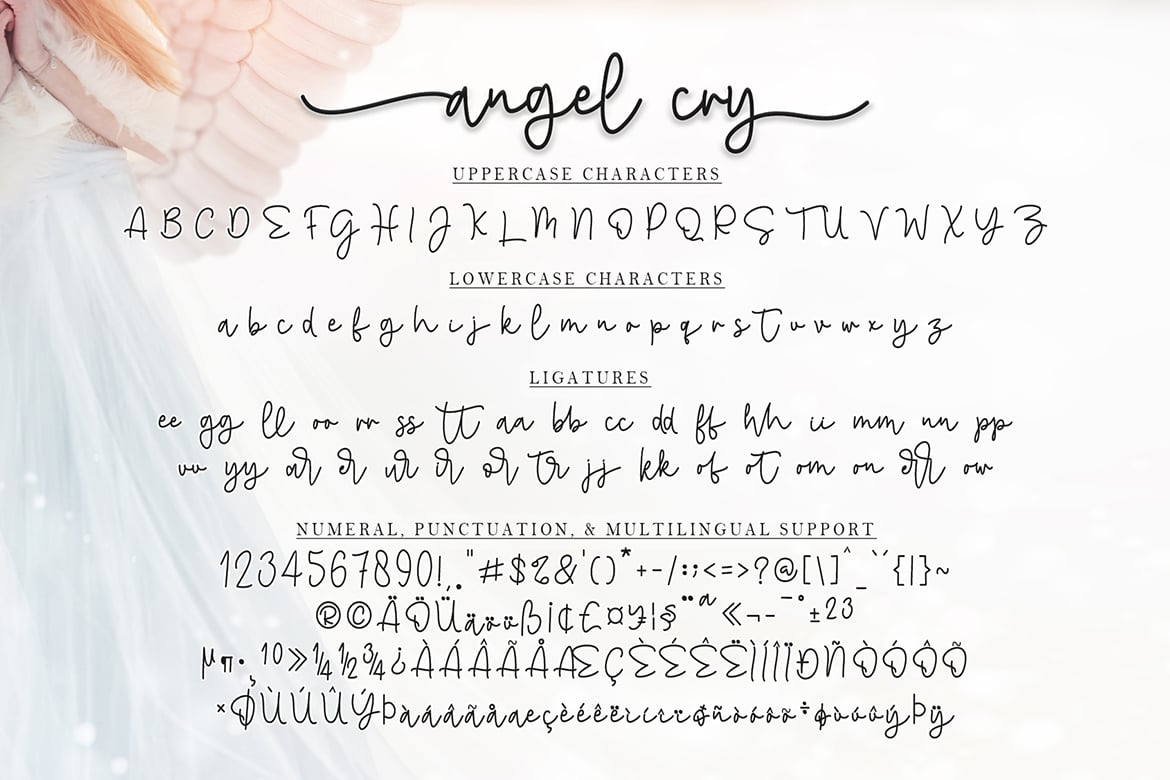 angel cry
UPPERCASE CHARACTERS
A B C D E F G H I J K L M N O P Q R S T U V W X Y Z
LOWERCASE CHARACTERS
a b c d e f g h i j k l m n o p q r s t u v w x y z
LIGATURES
ee gg ll oo rr ss tt aa bb cc dd ff hh ii mm nn pp
uu yy ar er ur ir or tr jj kk of ot om on err ow
NUMERAL, PUNCTUATION, & MULTILINGUAL SUPPORT
1234567890!,."#$%&'()*+-/:;<=>?@[\]^_``{|}~
®©ÄÖÜäöüß¡¢£¤¥¦§¨ª«¬-¯°±23
µ¶·¸10»¼½¾¿ÀÁÂÃÅÆÇÈÉÊËÌÍÎÏÐÑÒÓÔÕ
×ØÙÚÛÝÞàáâãåæçèéêëìíîïðñòóôõ÷øùúûýþÿ